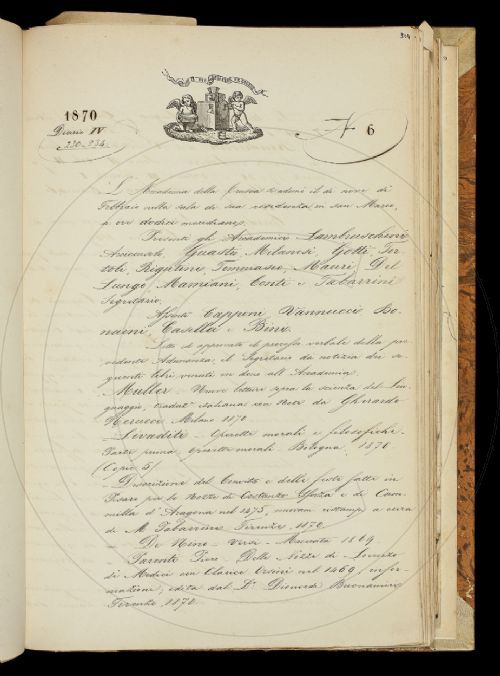 324
1870
Diario IV
230-234
N 6
L'Accademia della Crusca tenne il dì nove di
Febbraio nella sala di sua residenza in san Marco,
a ore dodici meridiane,
Presenti gli Accademici Lambruschini
Arciconsolo, Guasti, Milanesi, Gotti, Tor
toli, Rigutini, Tommaseo, Mauri, Del
Lungo, Mamiani, Conti e Tabarrini
Segretario.
Assenti Capponi, Vannucci, Bo
naini, Casella e Bini.
Letto ed approvato il processo verbale della pre
cedente Adunanza, il Segretario dà notizia dei se
guenti libri venuti in dono all'Accademia.
Müller - Nuove letture sopra la scienza del Lin
guaggio, tradotte italiane con Note da Gherardo
Nerucci Milano 1870.
- Levaditi - Operette morali e filosofiche.
Parte prima, Operette morali. Bologna, 1870
(Copie 5)
- Descrizione del Convito e delle feste fatte in
Pesaro per le Nozze di Costanzo Sforza e di Cam
milla d'Aragona nel 1475, nuovam. ristamp. a cura
di M. Tabarrini Firenze, 1870.
- De Nino - Versi - Macerata 1869
- Parenti Piero - Delle Nozze di Lorenzo
de Medici con Clarice Orsini nel 1469, infor
mazione, edita dal Dr Diomede Buonamici
Firenze, 1870.